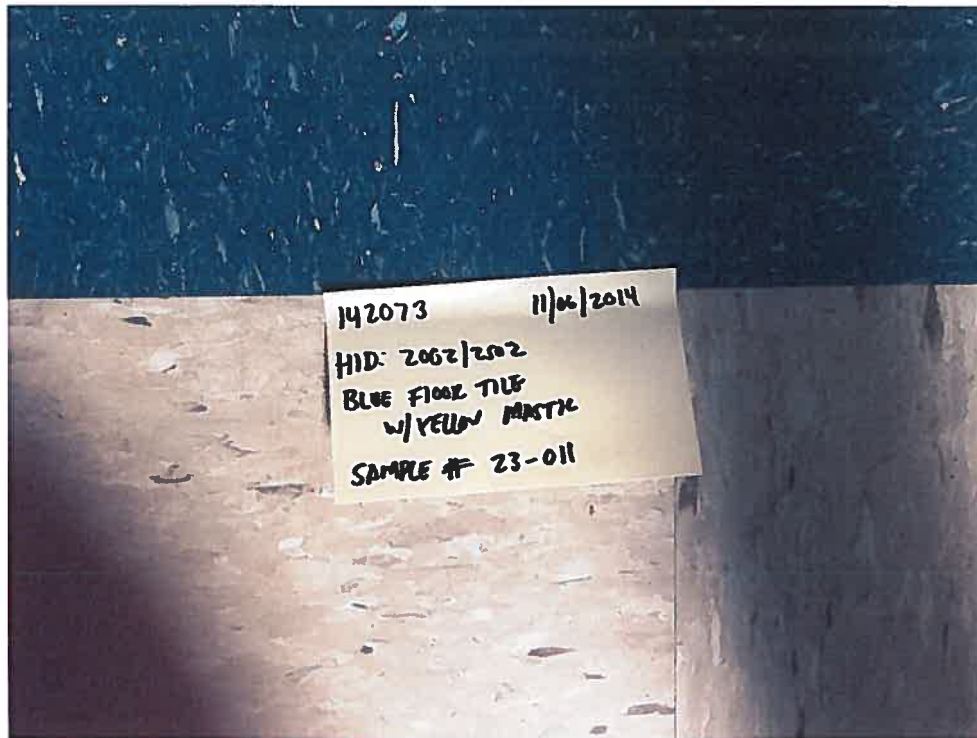 142073 11/06/2014
HID: 2002/2502
BLUE FLOOR TILE
W/YELLOW MASTIC
SAMPLE # 23-011